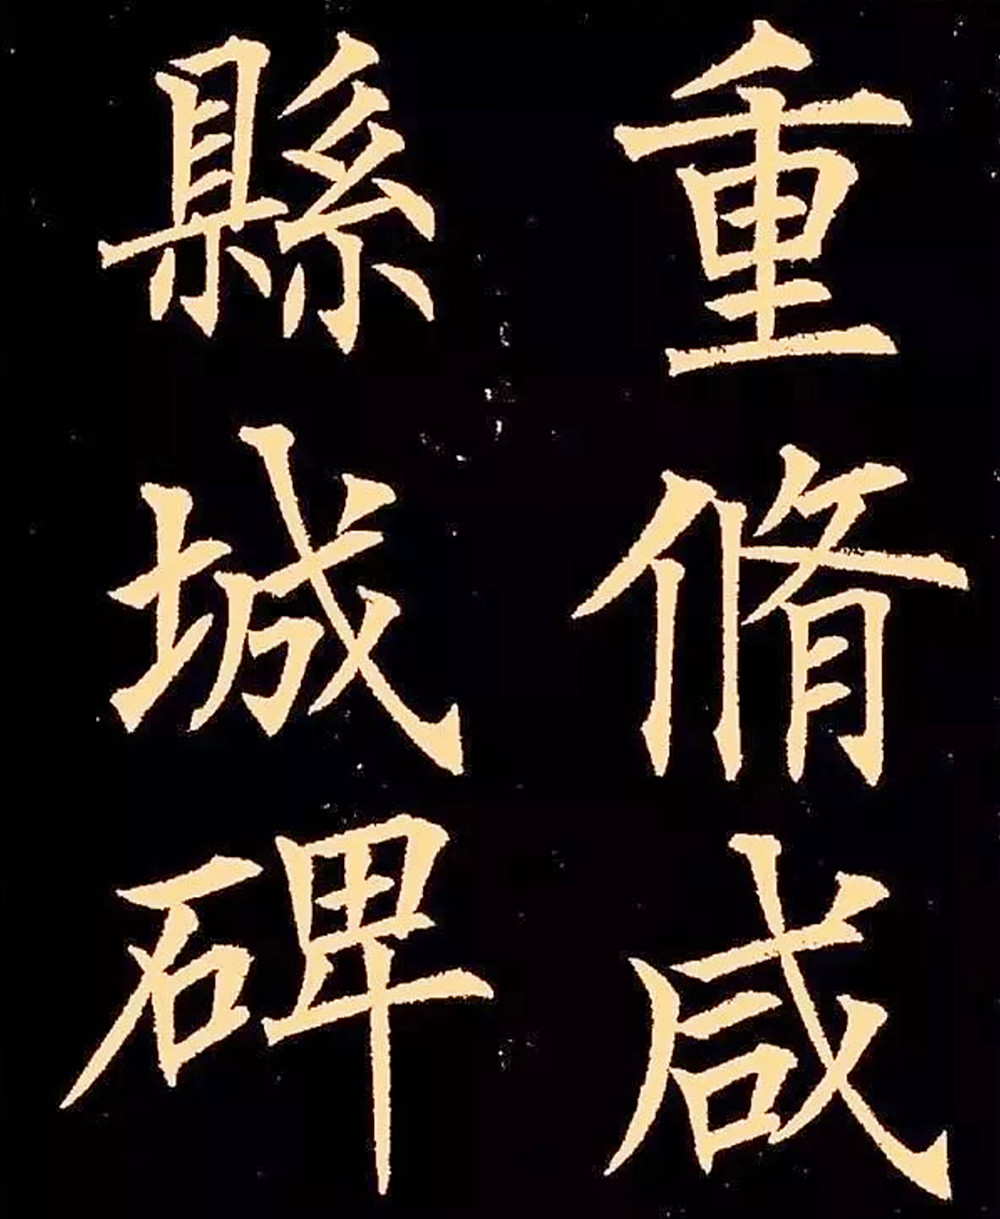 重脩咸
縣城碑